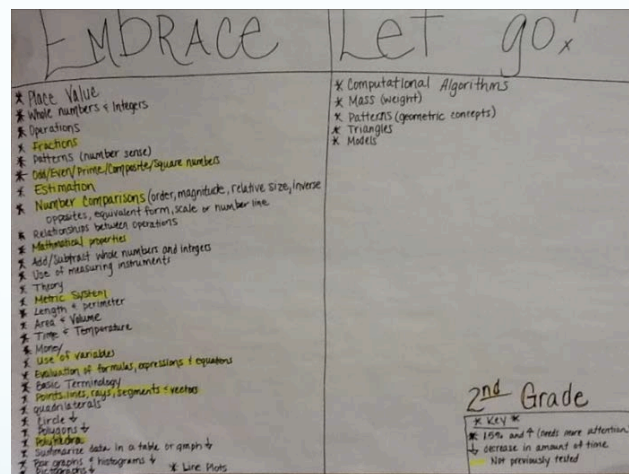 EMBRACE
* Place Value
* Whole numbers & Integers
* Operations
* Fractions
* Patterns (number sense)
* Odd/Even/Prime/Composite/Square numbers
* Estimation
* Number Comparisons (order, magnitude, relative size, inverse
opposites, equivalent form, scale or number line
* Relationships between operations
* Mathmatical properties
* Add/Subtract whole numbers and integers
* Use of measuring instruments
* Theory
* Metric System
* Length & perimeter
* Area & Volume
* Time & Temperature
* Money
* Use of variables
* Evaluation of formulas, expressions & equations
* Basic Terminology
* Points, lines, rays, segments & vectors
* quadrilaterals
* Circle ↓
* Polygons ↓
* Polyhedra
* Summarize data in a table or graph ↓
* Bar graphs & histograms ↓
* Pictographs ↓
* Line Plots
Let go!
* Computational Algorithms
* Mass (weight)
* Patterns (geometric concepts)
* Triangles
* Models
2nd Grade
* Key *
* 15% and ↑ (needs more attention)
↓ decrease in amount of time
Not previously tested